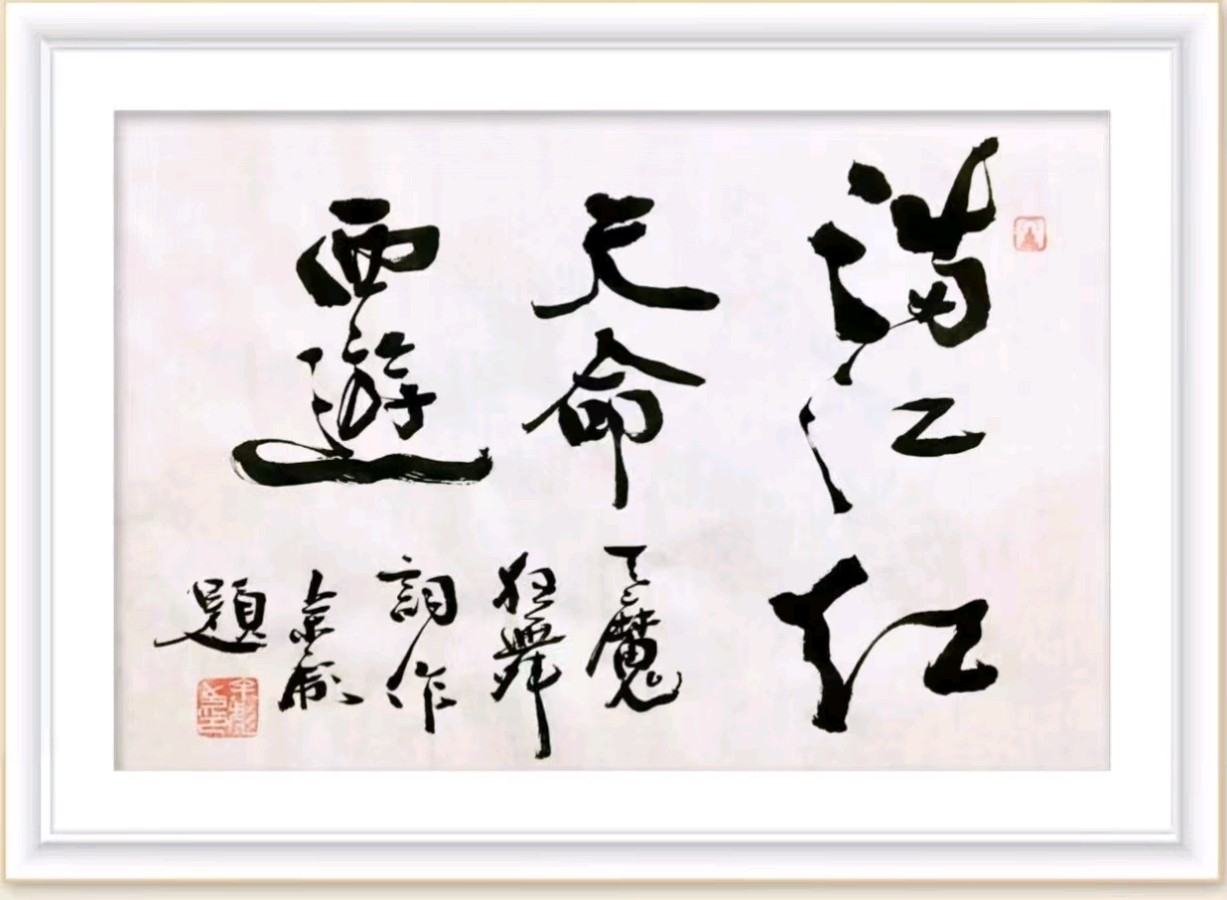 满江红
天命
西遊
天魔
狂舞
詞作
題